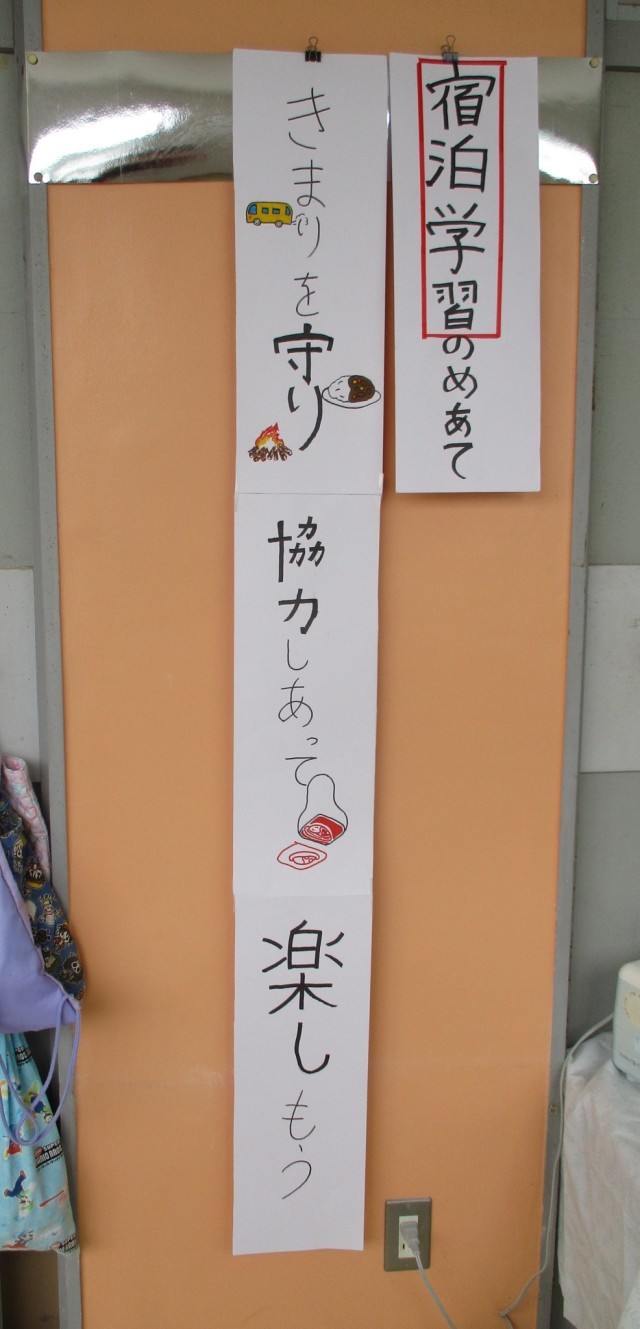 宿泊学習のめあて
きまりを守り
協力しあって
楽しもう